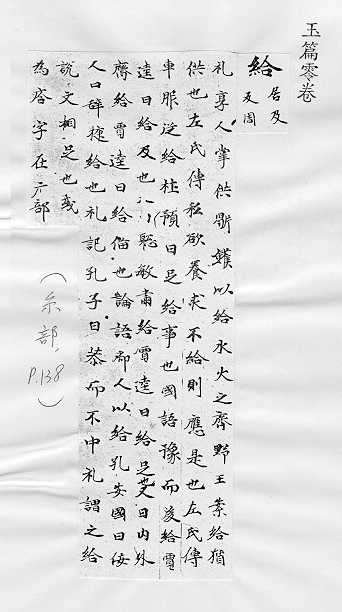 玉篇零卷
給 居及
反周
礼享人掌供鼎鑊以給水火之齊野王案給猶
供也左氏傳私欲養求不給則應是也左氏傳
車服從給杜預曰足給事也國語豫而後給賈
逵曰給及也又曰聡敏肅給賈逵曰給足也又曰内外
齊給賈逵曰給俻也論語禦人以給孔安國曰佞
人口辞捷給也礼記孔子曰恭而不中礼謂之給
說文相足也或
為 字在 部
(糸部, P.138)